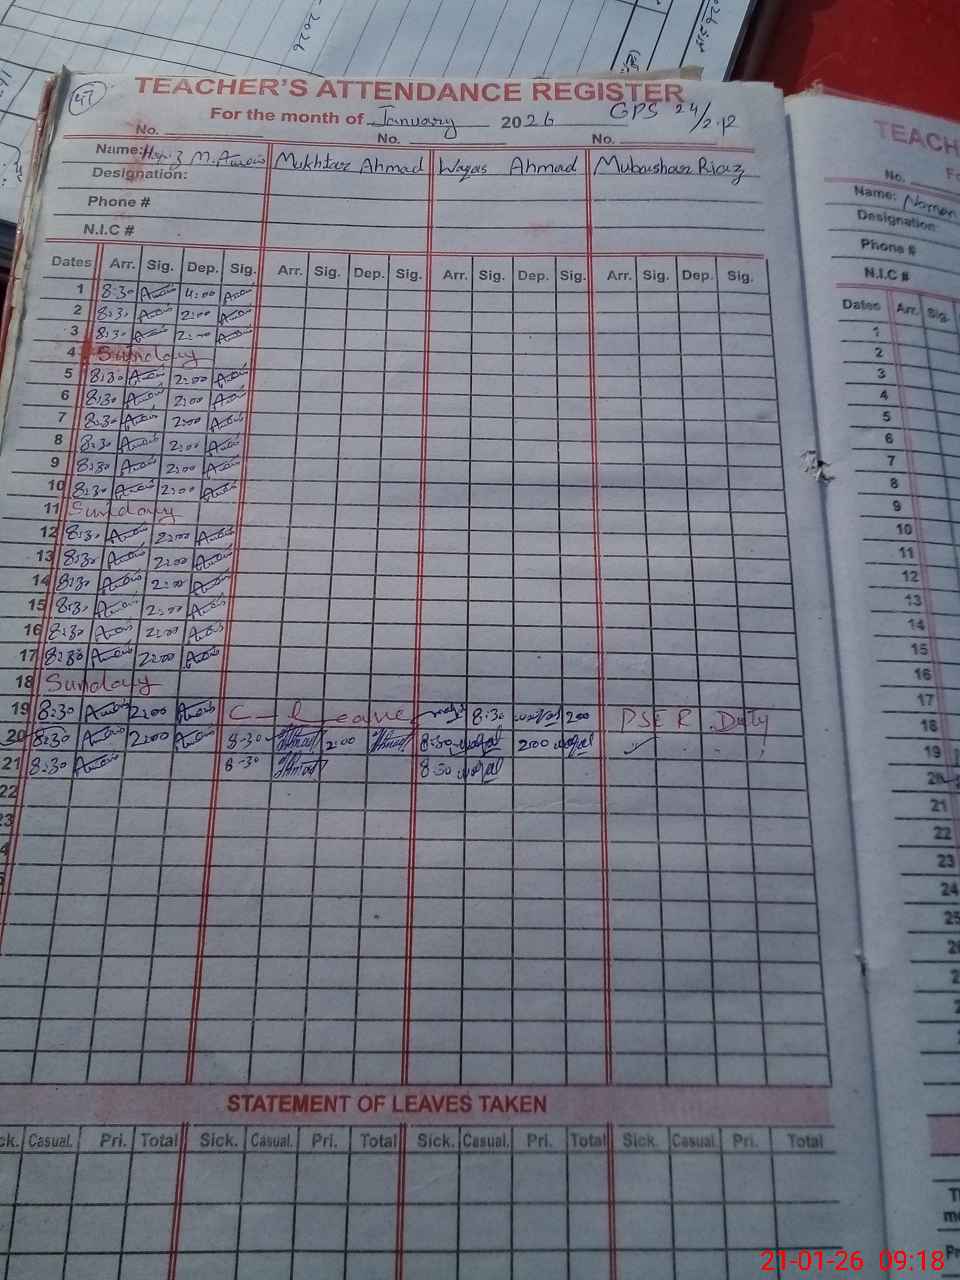 2026
47
TEACHER'S ATTENDANCE REGISTER
For the month of January 2026 GPS 24/2.12
No. No. No.
Name: Hafiz M. Awais Mukhtar Ahmad Waqas Ahmad Mubashar Riaz
Designation:
Phone #
N.I.C #
Dates Arr. Sig. Dep. Sig. Arr. Sig. Dep. Sig. Arr. Sig. Dep. Sig. Arr. Sig. Dep. Sig.
1 8:30 Awais 4:00 Awais
2 8:30 Awais 2:00 Awais
3 8:30 Awais 2:00 Awais
4 Sunday
5 8:30 Awais 2:00 Awais
6 8:30 Awais 2:00 Awais
7 8:30 Awais 2:00 Awais
8 8:30 Awais 2:00 Awais
9 8:30 Awais 2:00 Awais
10 8:30 Awais 2:00 Awais
11 Sunday
12 8:30 Awais 2:00 Awais
13 8:30 Awais 2:00 Awais
14 8:30 Awais 2:00 Awais
15 8:30 Awais 2:00 Awais
16 8:30 Awais 2:00 Awais
17 8:30 Awais 2:00 Awais
18 Sunday
19 8:30 Awais 2:00 Awais C-Leave waqas 8:30 waqas 200 PSER Duty
20 8:30 Awais 2:00 Awais 8-30 Ahmad 2:00 Ahmad 8:30 waqas 200 waqas
21 8:30 Awais 8-30 Ahmad 8:30 waqas
22
23
4
5
STATEMENT OF LEAVES TAKEN
ck. Casual. Pri. Total Sick. Casual. Pri. Total Sick. Casual. Pri. Total Sick. Casual. Pri. Total
TEACH
No.
Name: Noman
Designation:
Phone #
N.I.C #
Dates Arr. Sig.
1
2
3
4
5
6
7
8
9
10
11
12
13
14
15
16
17
18
19
20
21
22
23
24
25
21-01-26 09:18